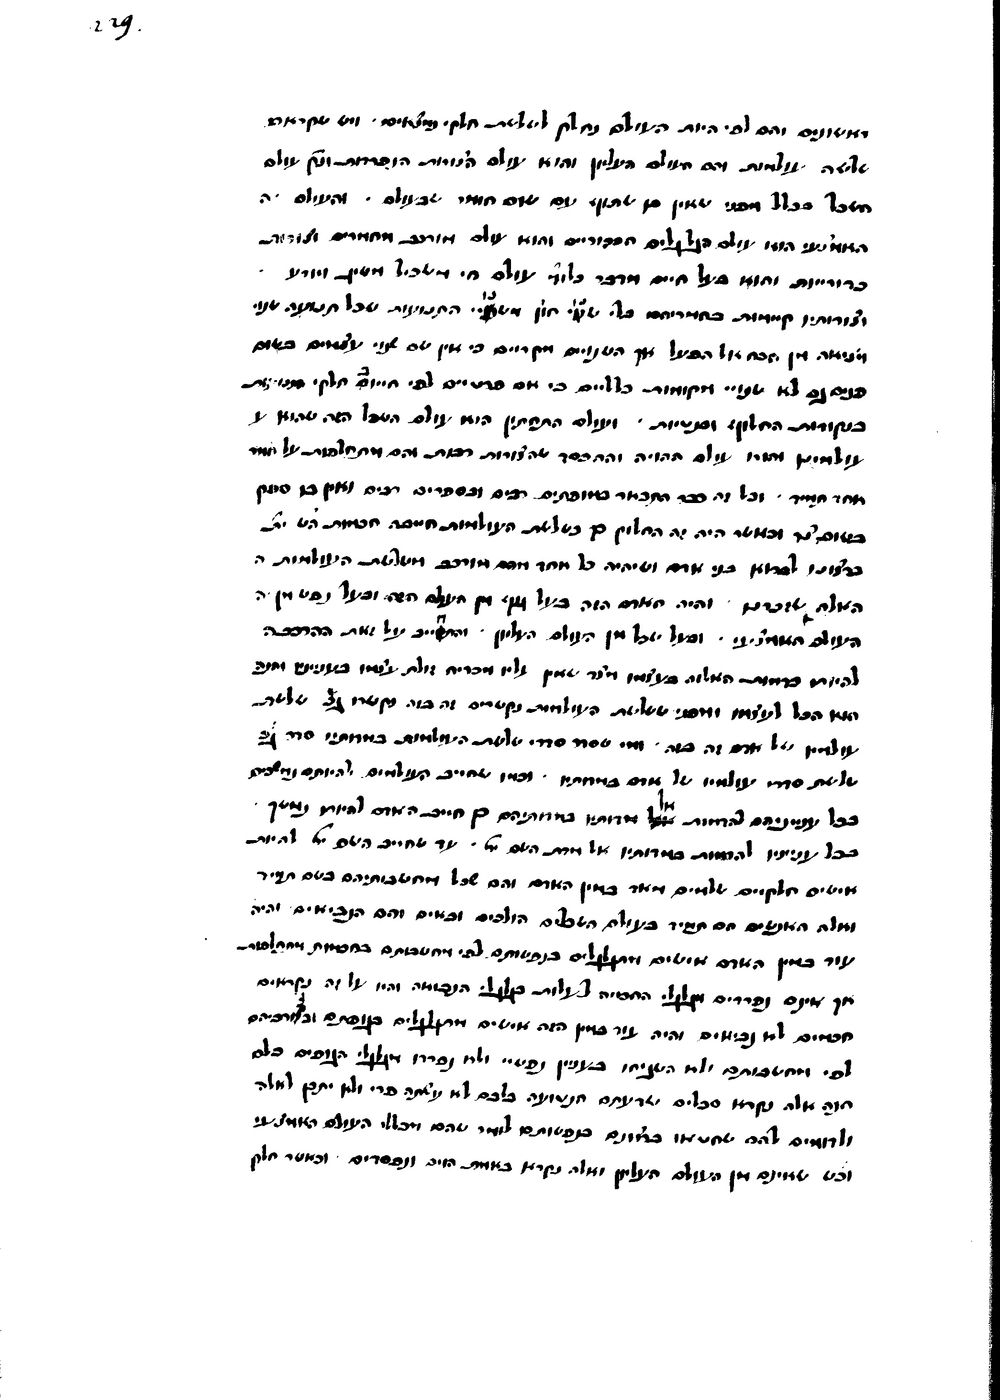 229.
ראשונים והם לפי היות העולם נחלק לשלשת חלקי נמצאים · ויש שקראם
שלשה עולמות והם העולם העליון והוא עולם הצורות הנפרדות ונק' עולם
השכל בכלל מפני שאין בו שתוף עם שום חומר שבעולם · והעולם ה
האמצעי הוא עולם הגלגלים הכדוריים והוא עולם מורכב מחמרים וצורות
כדוריות והוא בעל חיים מדבר כלומ' עולם חי משכיל משיג ויודע ·
וצורותיו קיימות בחמריהם בלי שנוי חוץ משנויי התנועות שכל תנועה שנוי
ויציאה מן הכח אל הפעל אך השנויים מקריים כי אין שם שנוי עצמים בשום
פנים גם לא שנויי מקומות כלליים כי אם פרטיים לפי חיוב חלקי
בנקודות החלוף · ועולם התחתון הוא עולם השפל הזה שהוא ע
עולמינו והוא עולם ההויה וההפסד שהצורות רבות והם מתחלפות על חמר
אחד תמיד · וכל זה כבר התבאר במופתים רבים ובספרים רבים ואין בו ספק
בשום צד וכאשר היה זה החלוק כן בשלשת העולמות חייבה חכמת השם ית'
ברצונו לברוא בני אדם ושיהיה כל אחד מהם מורכב משלשת העולמות ה
האלה שזכרנו · והיה האדם הזה בעל גוף מן העולם הזה ובעל נפש מן ה
העולם האמצעי · ובעל שכל מן העולם העליון · והתחייב על זאת ההרכבה
להיותו בדמות האלוה בעצמו מצד שאין עליו מכריח זולת עצמו בעניינים והנה
הוא הכל לעצמו ומפני ששלשת העולמות נקשרים זה בזה נקשרו גם שלשת
עולמיו של אדם זה בזה · ומי שסדר סדרי שלשת העולמות במדותיו סדר גם
שלשת סדרי עולמיו של אדם במדותיו · וכמו שחייב העולמים להיותם נמשכים
בכל ענייניהם להדמות אל מדותיו במדותיהם כן חייב האדם להיותו נמשך ·
בכל ענייניו להדמות במדותיו אל מדת השם ית' · עד שחייב השם ית' להיות
אישים חלקיים שלמים מאד במין האדם והם שכל מחשבותיהם בשם תמיד
ואלה האנשים הם תמיד בעולם השכלים הולכים ובאים והם הנביאים והיה
עוד במין האדם אישים מתגלגלים בנפשותם לפי מחשבותם בחכמות מתחלפות
אך אינם נפרדים מגלגלי החכמה לעלות בגלגלי הנבואה והיו על זה נקראים
חכמים לא נביאים והיה עוד במין הזה אישים מתגלגלים בגופם ובצורכיהם
לפי מחשבותם ולא השגיחו בעניין נפשיי ולא נפרדו מגלגלי הגופים כלם
והנה אלה נקרא סכלים שדעתם הנטועה בלבם לא עשתה פרי ולא יתכן לאלה
ולדומים להם שחטאו ברצונם בנפשותם לומר שהם מכללי העולם האמצעי
וכ"ש שאינם מן העולם העליון ואלה נקרא באמת הוים ונפסדים · וכאשר חלק